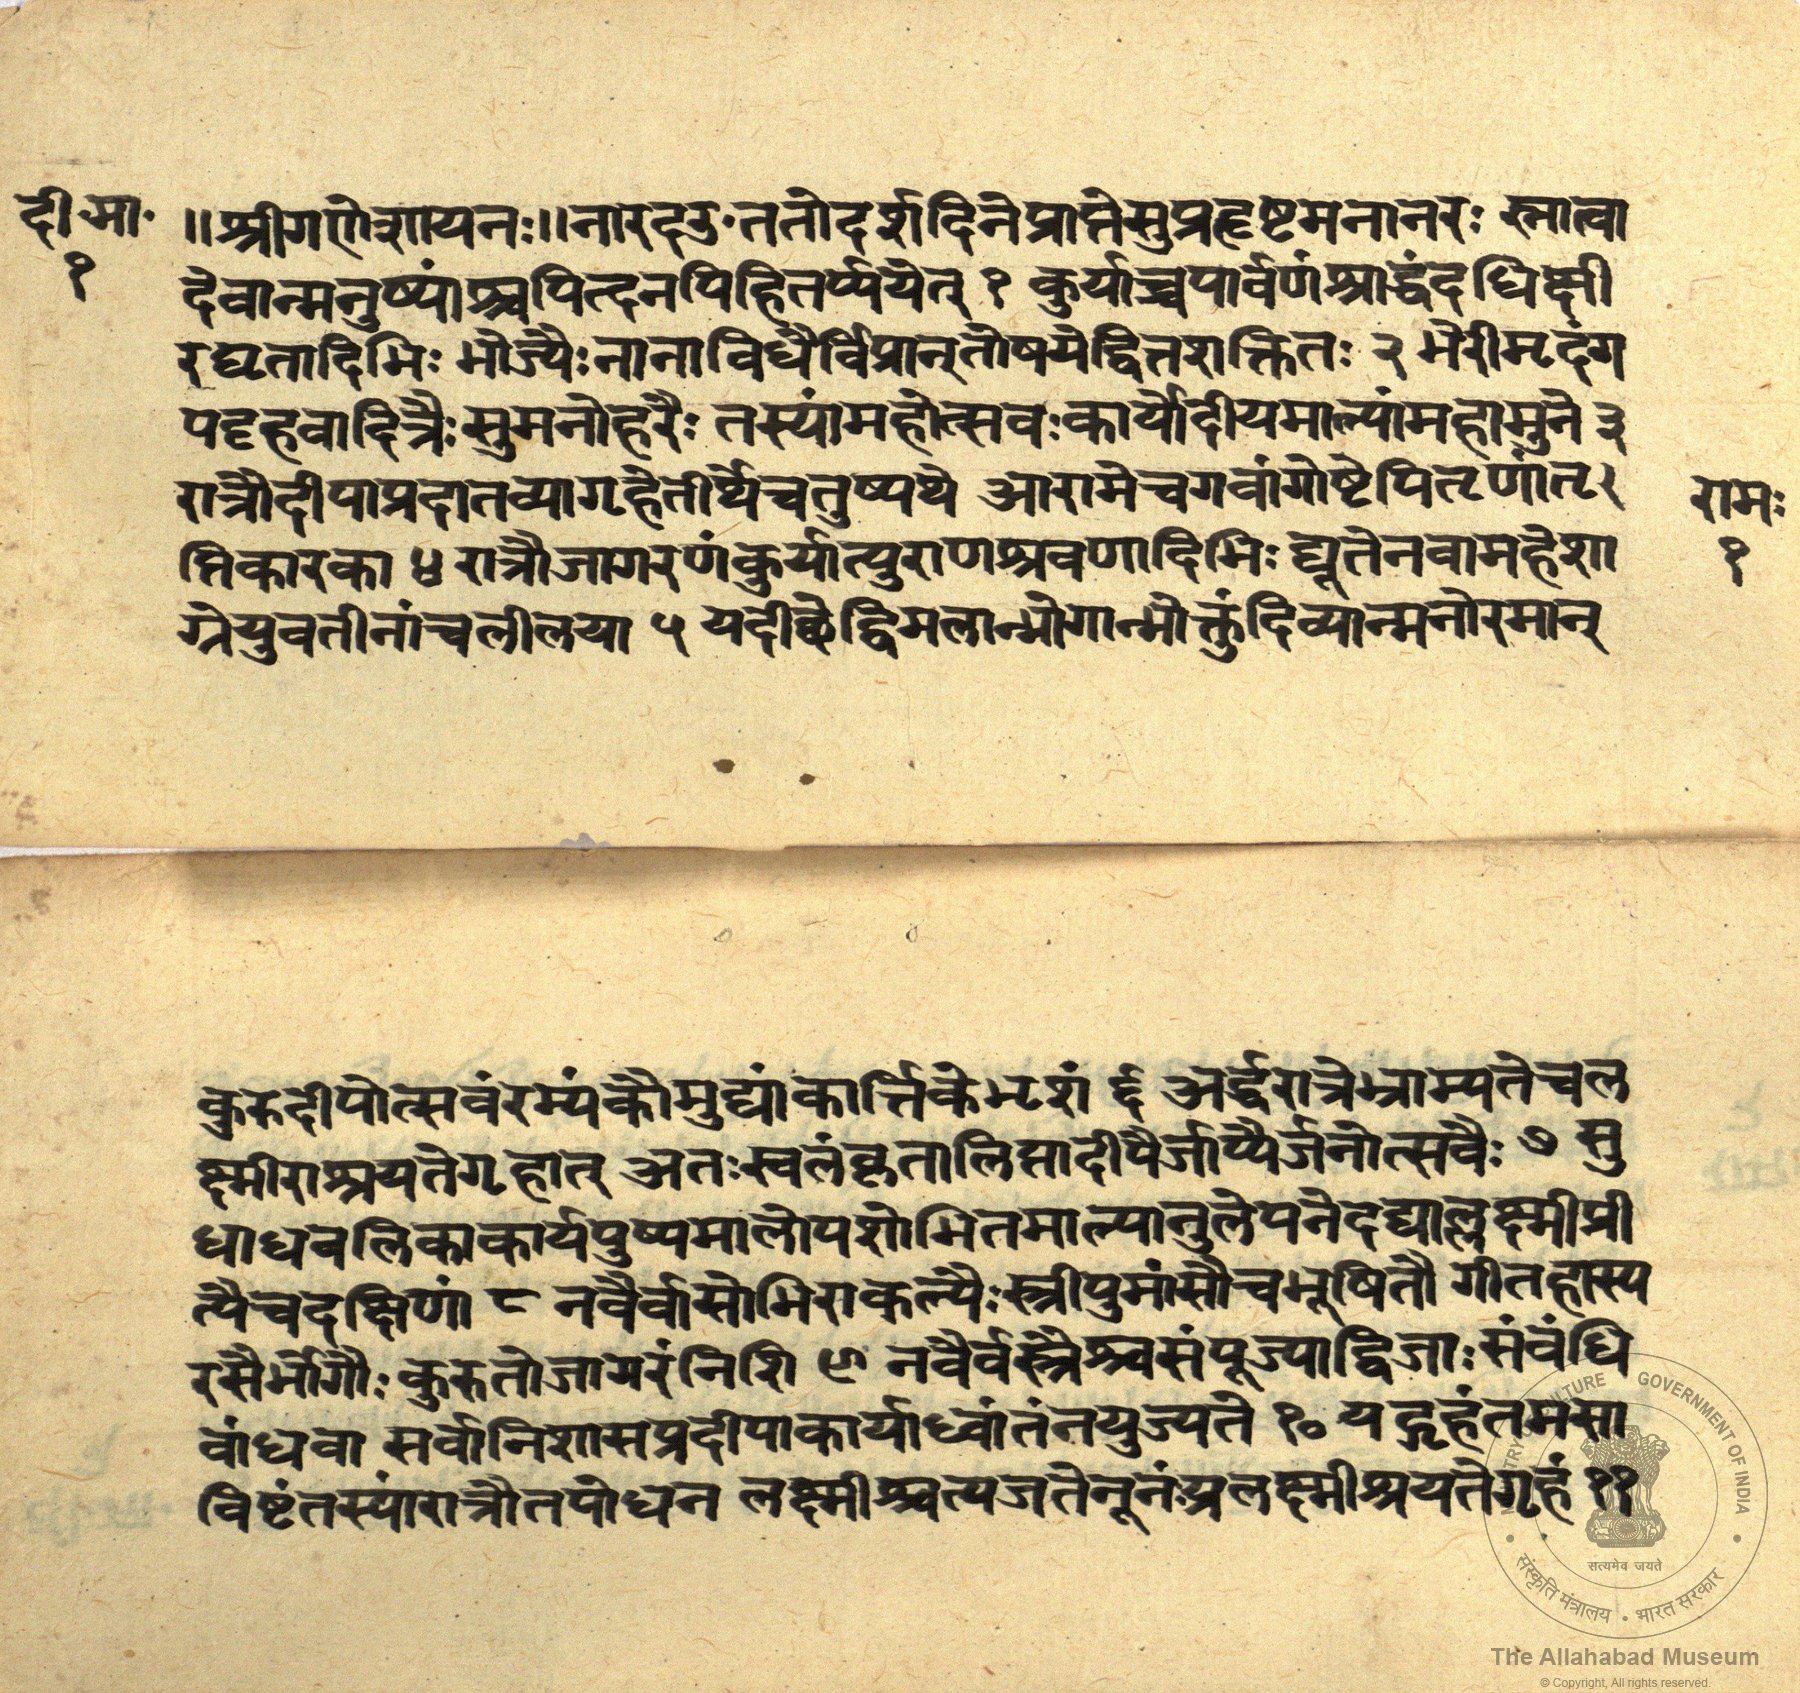 दी·मा·
१
॥श्रीगणेशायनः॥नारदउ·ततोदर्शदिनेप्राप्तेसुप्रहृष्टमनानरः स्नात्वा
देवान्मनुष्यांश्चपितृनपिहितर्प्पयेत् १ कुर्याच्चपार्वणंश्राद्धंदधिक्षी
रघृतादिभिः भोज्यैःनानाविधैर्विप्रान्तोषयेद्वित्तशक्तितः २ भेरीमृदंग
पटहवादित्रैःसुमनोहरैः तस्यांमहोत्सवःकार्योदीयमाल्यांमहामुने ३
रात्रौदीपाप्रदातव्यागृहेतीर्थेचतुष्पथे आरामेचगवांगोष्टेपितृणांतृ
रामः
१
प्तिकारका ४ रात्रौजागरणंकुर्यात्पुराणश्रवणादिभिः द्यूतेनवामहेशा
ग्नेयुवतीनांचलीलया ५ यदीच्छेद्विमलान्भोगान्भोक्तुंदिव्यान्मनोरमान्
कुरुदीपोत्सवंरम्यंकौमुद्यांकार्त्तिकेभृशं ६ अर्द्धरात्रेभ्राम्यतेचल
क्ष्मीराश्रयतेगृहात् अतःस्वलंकृतालिप्तादीपैर्जाप्यैर्जनोत्सवैः ७ सु
धाधवलिकाकार्यपुष्पमालोपशोभितमाल्यानुलेपनेदद्याल्लक्ष्मीप्री
त्यैचदक्षिणां ८ नवैर्वासोभिराकल्यैःस्त्रीपुमांसौचभूषितौ गीतहास्य
रसैर्भोगैः कुरुतोजागरंनिशि ९ नवैर्वस्त्रैश्चसंपूज्याद्विजाःसंवंधि
वांधवा सर्वानिशासप्रदीपाकार्याध्वांतंनयुज्यते १० यद्गृहंतमसा
विष्टंतस्यांरात्रौतपोधन लक्ष्मीश्चत्यजतेनूनंप्रलक्ष्मीश्रयतेगृहं ११
MINISTRY OF CULTURE GOVERNMENT OF INDIA
सत्यमेव जयते
संस्कृति मंत्रालय • भारत सरकार
The Allahabad Museum
© Copyright, All rights reserved.